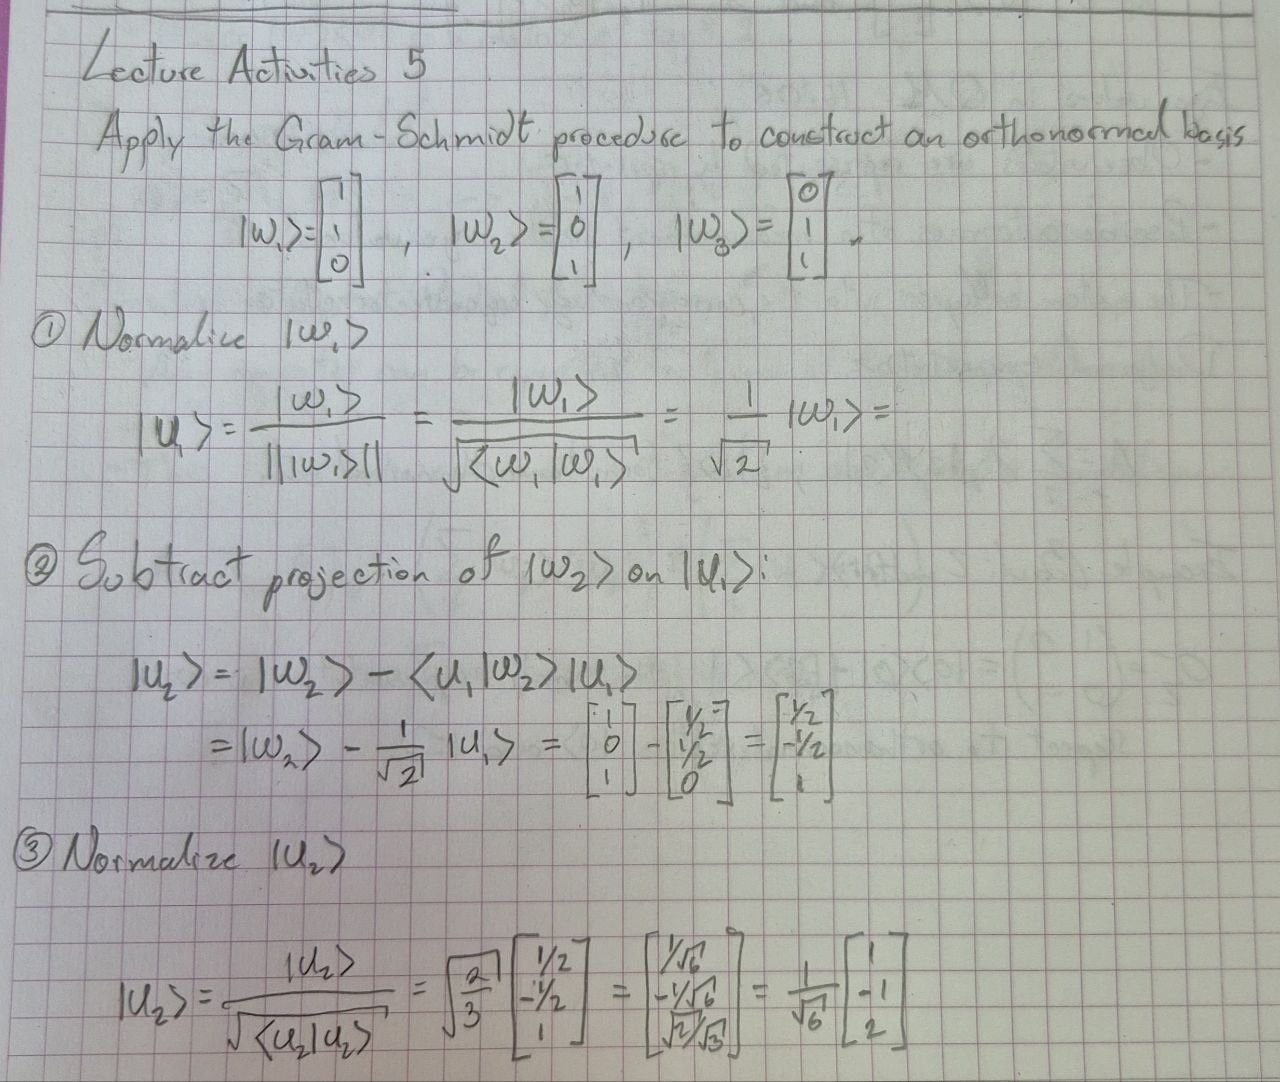 Lecture Activities 5
Apply the Gram-Schmidt procedure to construct an orthonormal basis
|w₁> = [1 1 0], |w₂> = [1 0 1], |w₃> = [0 1 1].
① Normalize |w₁>
|u₁> = |w₁> / || |w₁> || = |w₁> / √<w₁|w₁> = 1/√2 |w₁> =
② Subtract projection of |w₂> on |u₁>:
|u₂> = |w₂> - <u₁|w₂> |u₁>
= |w₂> - 1/√2 |u₁> = [1 0 1] - [1/2 1/2 0] = [1/2 -1/2 1]
③ Normalize |u₂>
|u₂> = |u₂> / √<u₂|u₂> = √(2/3) [1/2 -1/2 1] = [1/√6 -1/√6 √2/√3] = 1/√6 [1 -1 2]